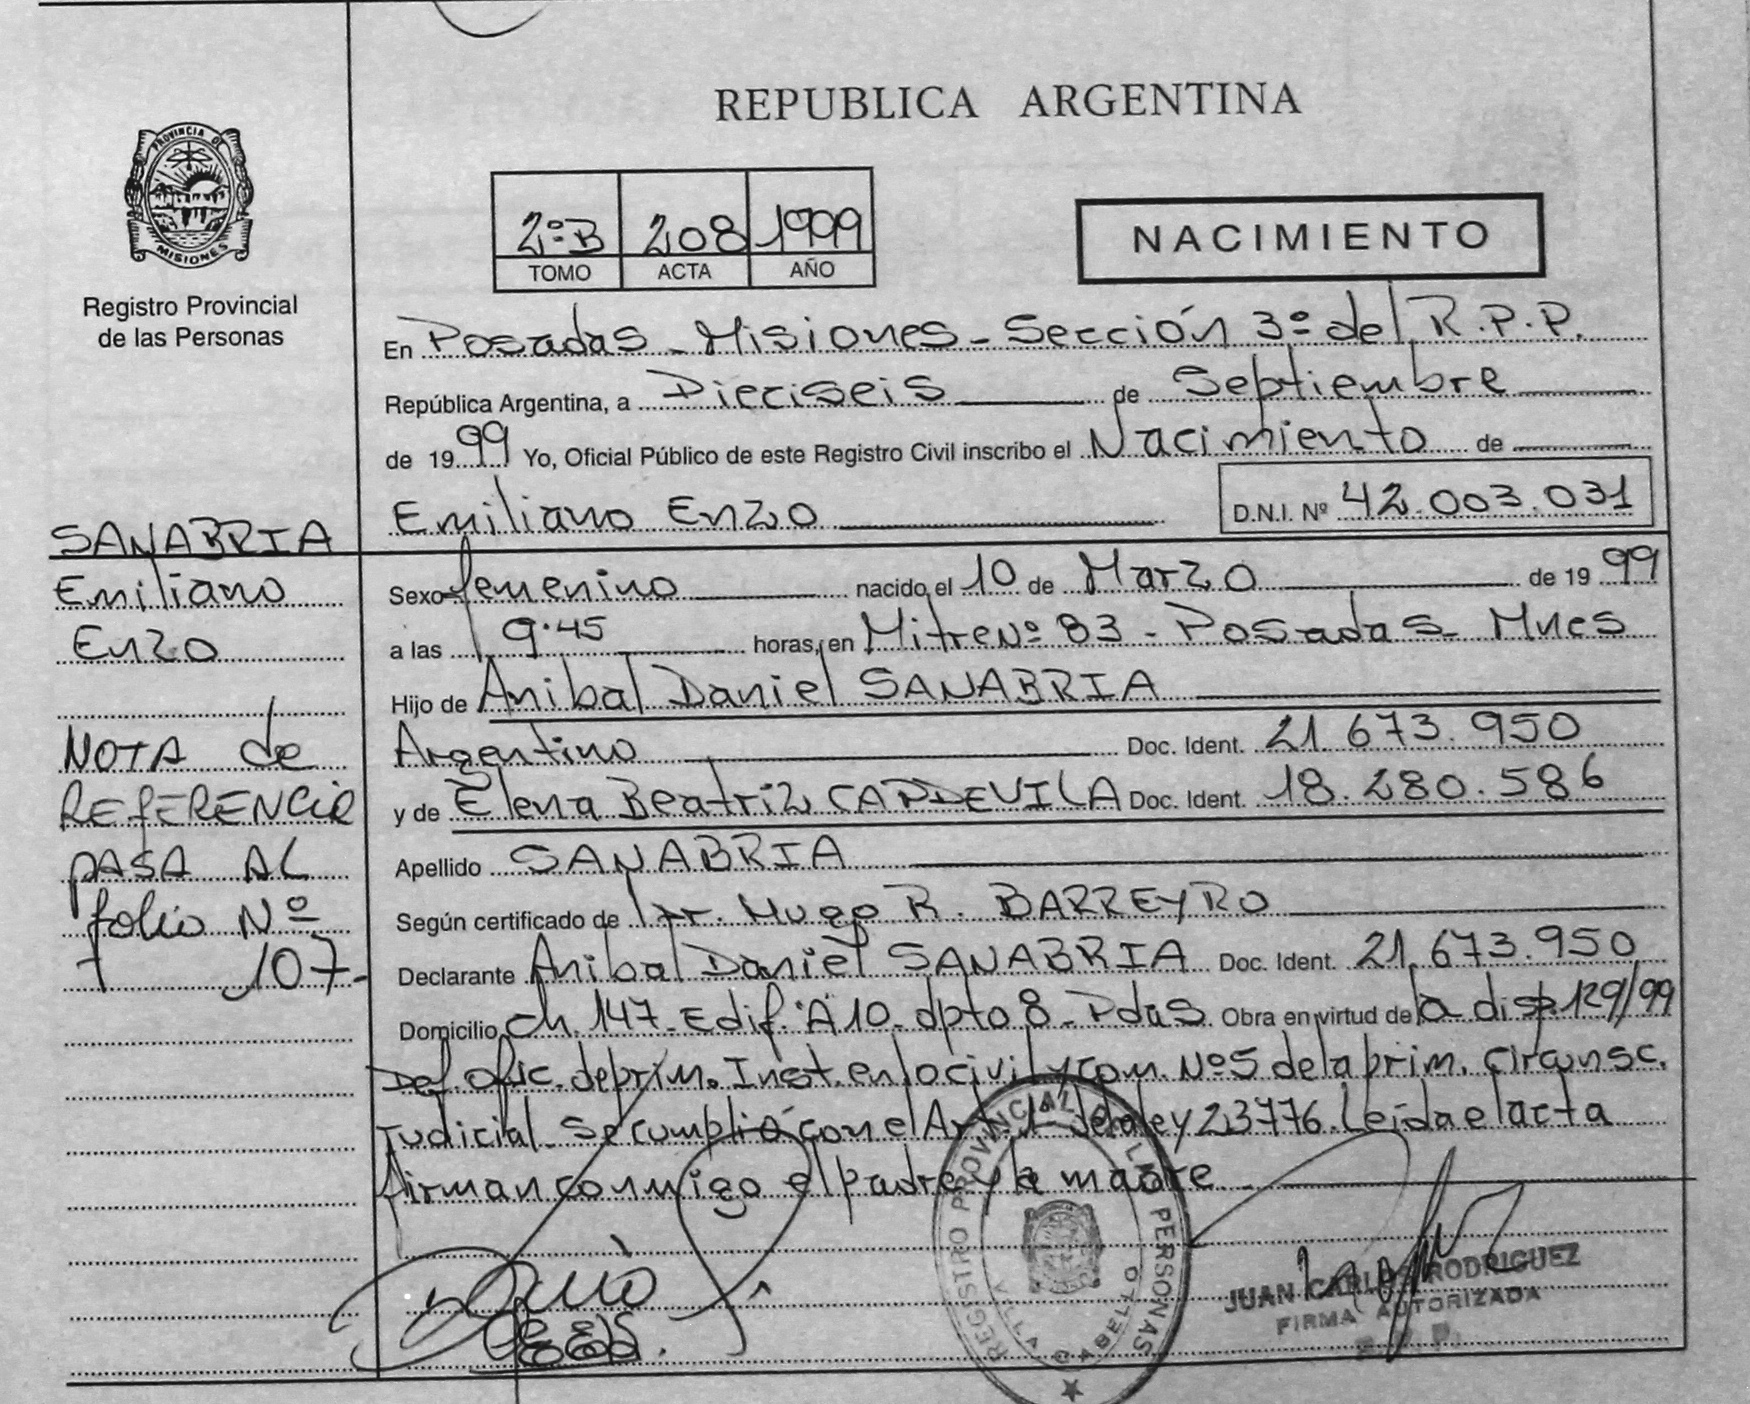 REPUBLICA ARGENTINA
PROVINCIA DE
MISIONES
Registro Provincial
de las Personas
2º B 208 1999
TOMO ACTA AÑO
NACIMIENTO
En Posadas - Misiones - Sección 3º del R.P.P.
República Argentina, a Dieciseis de Septiembre
de 1999 Yo, Oficial Público de este Registro Civil inscribo el Nacimiento de
Emiliano Enzo D.N.I. Nº 42.003.031
SANABRIA
Emiliano
Enzo
NOTA de
REFERENCIA
PASA AL
folio Nº
107-
Sexo femenino nacido el 10 de Marzo de 1999
a las 9.45 horas, en Mitre Nº 83 - Posadas - Mnes
Hijo de Anibal Daniel SANABRIA
Argentino Doc. Ident. 21.673.950
y de Elena Beatriz CAPDEVILA Doc. Ident. 18.280.586
Apellido SANABRIA
Según certificado de Hugo R. BARREYRO
Declarante Anibal Daniel SANABRIA Doc. Ident. 21.673.950
Domicilio Ch. 147- Edif. "A 10- dpto 8 - Pdas Obra en virtud de la disp. 129/99
Def. ofic. de prim. Inst. en lo civil y com. Nº 5 de la prim. Circunsc.
Judicial - Se cumplió con el Art. 1 de la ley 23776. Leída el acta
firman conmigo el padre y la madre
REGISTRO PROVINCIAL DE LAS PERSONAS
JUAN CARLOS RODRIGUEZ
FIRMA AUTORIZADA